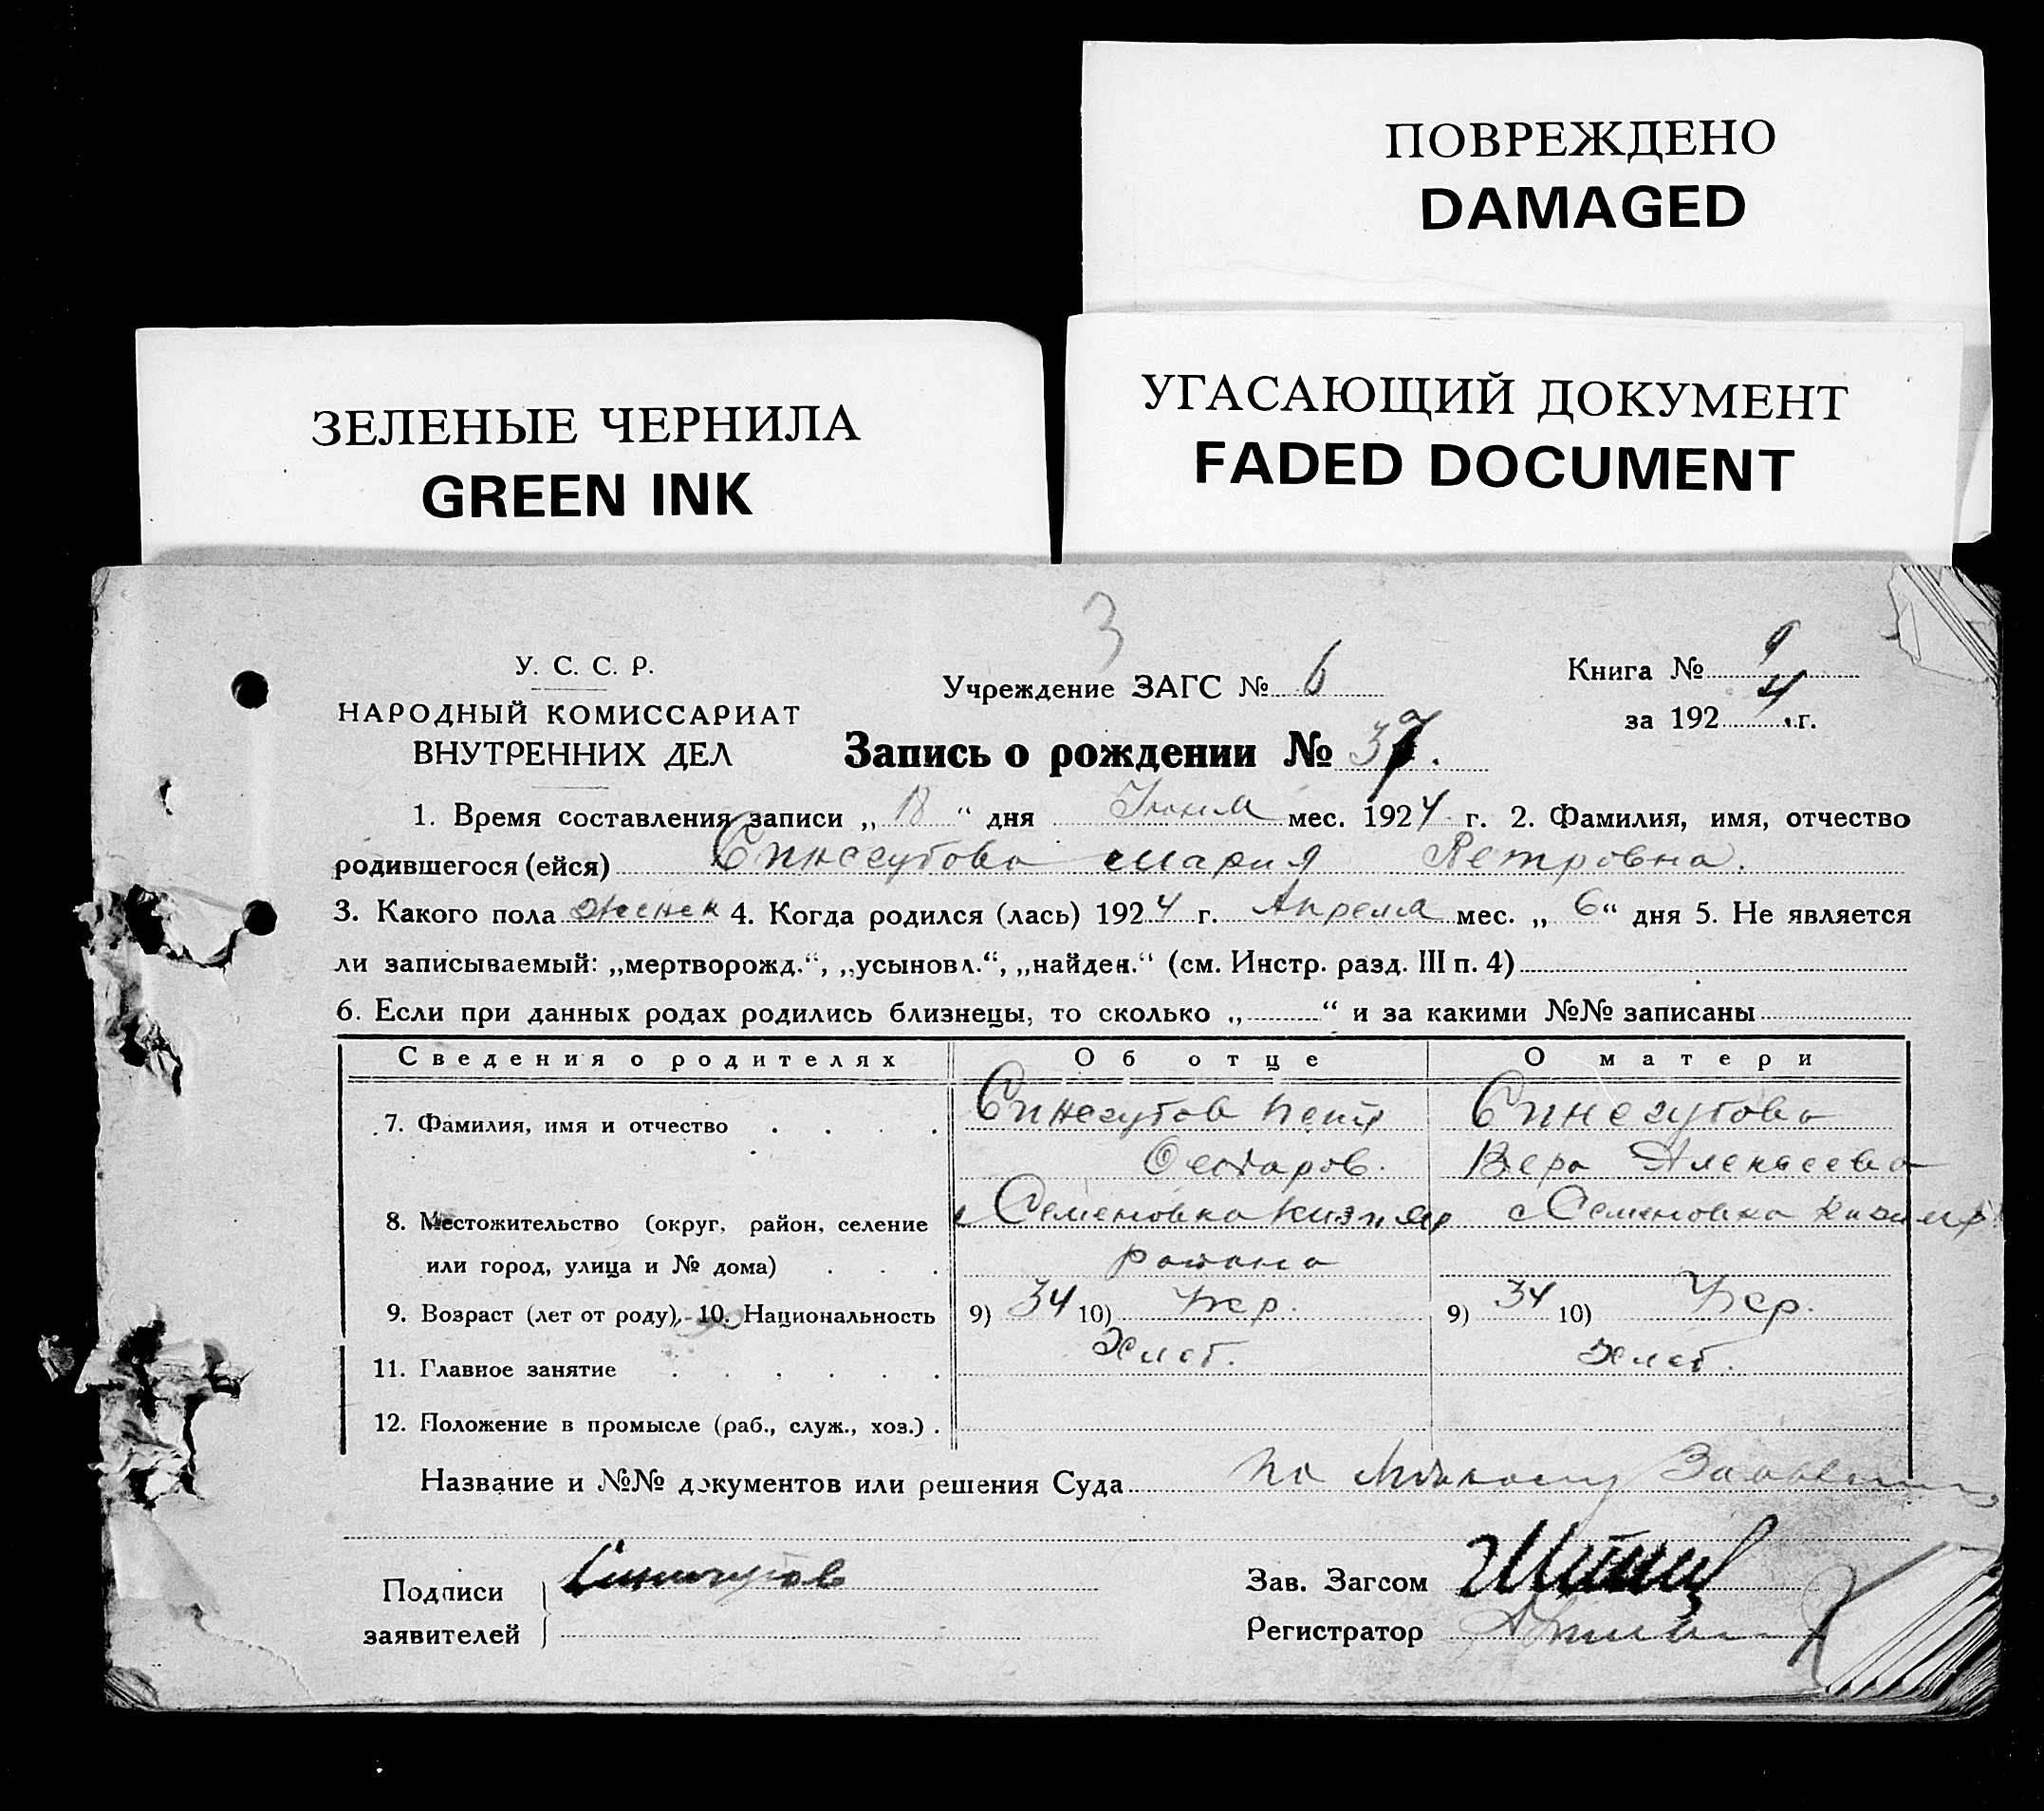 ПОВРЕЖДЕНО
DAMAGED
ЗЕЛЕНЫЕ ЧЕРНИЛА
GREEN INK
УГАСАЮЩИЙ ДОКУМЕНТ
FADED DOCUMENT
3
У. С. С. Р.
НАРОДНЫЙ КОМИССАРИАТ
ВНУТРЕННИХ ДЕЛ
Учреждение ЗАГС № 6
Книга № 9
за 1924 г.
Запись о рождении №
1. Время составления записи „ 18 “ дня Июня мес. 1924 г. 2. Фамилия, имя, отчество
родившегося (ейся) Синегубова Мария Петровна.
3. Какого пола женск 4. Когда родился (лась) 1924 г. Апреля мес. „ 6 “ дня 5. Не является
ли записываемый: „мертворожд.“, „усыновл.“, „найден.“ (см. Инстр. разд. III п. 4)
6. Если при данных родах родились близнецы, то сколько „ “ и за какими №№ записаны
Сведения о родителях Об отце О матери
7. Фамилия, имя и отчество Синегубов Петр Синегубова
Вера Алексеева
8. Местожительство (округ, район, селение с Семеновка с Семеновка
или город, улица и № дома) района
9. Возраст (лет от роду), 10. Национальность 9) 34 10) Укр. 9) 34 10) Укр.
11. Главное занятие Хлеб. Хлеб.
12. Положение в промысле (раб., служ., хоз.)
Название и №№ документов или решения Суда по личному
Подписи Синегубов Зав. Загсом
заявителей Регистратор